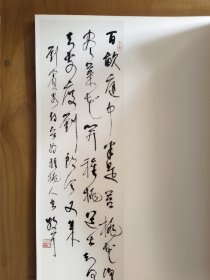 百畝庭中半是苔桃花淨
盡菜花開種桃道士歸何
處前度劉郎今又來
劉賓客詩